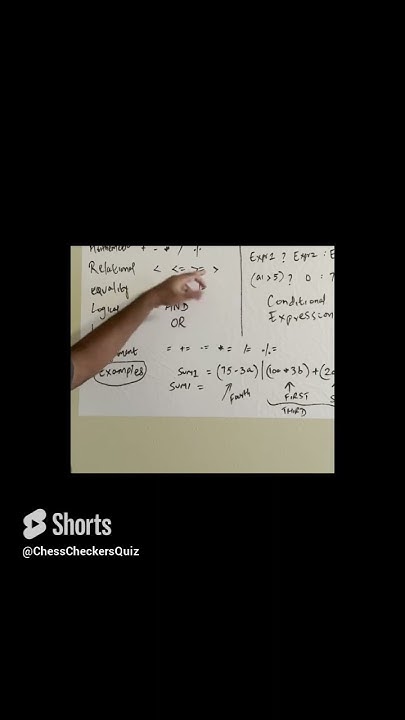 + - * / %
Relational < <= >= >
equality
Logica
AND
OR
= += -= *= /= %=
Examples
Sum1 = (75-3a) | (100*3b) + (2a
Sum1 =
Fourth
FIRST
THIRD
Expr1 ? Expr2 : E
(a1>5) ? 0 : ?
Conditional
Expression
Shorts
@ChessCheckersQuiz